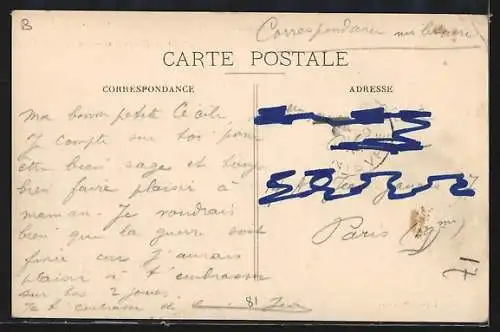 B
Correspondance militaire
CARTE POSTALE
CORRESPONDANCE
ADRESSE
ma bonne petite Cécile
Je compte sur toi pour
etre bien sage et
bien faire plaisir à
maman. Je voudrais
bien que la guerre soit
finie car J'aurais
plaisir à t'embrasser
sur les 2 joues.
Je t'embrasse
Paris
81
71